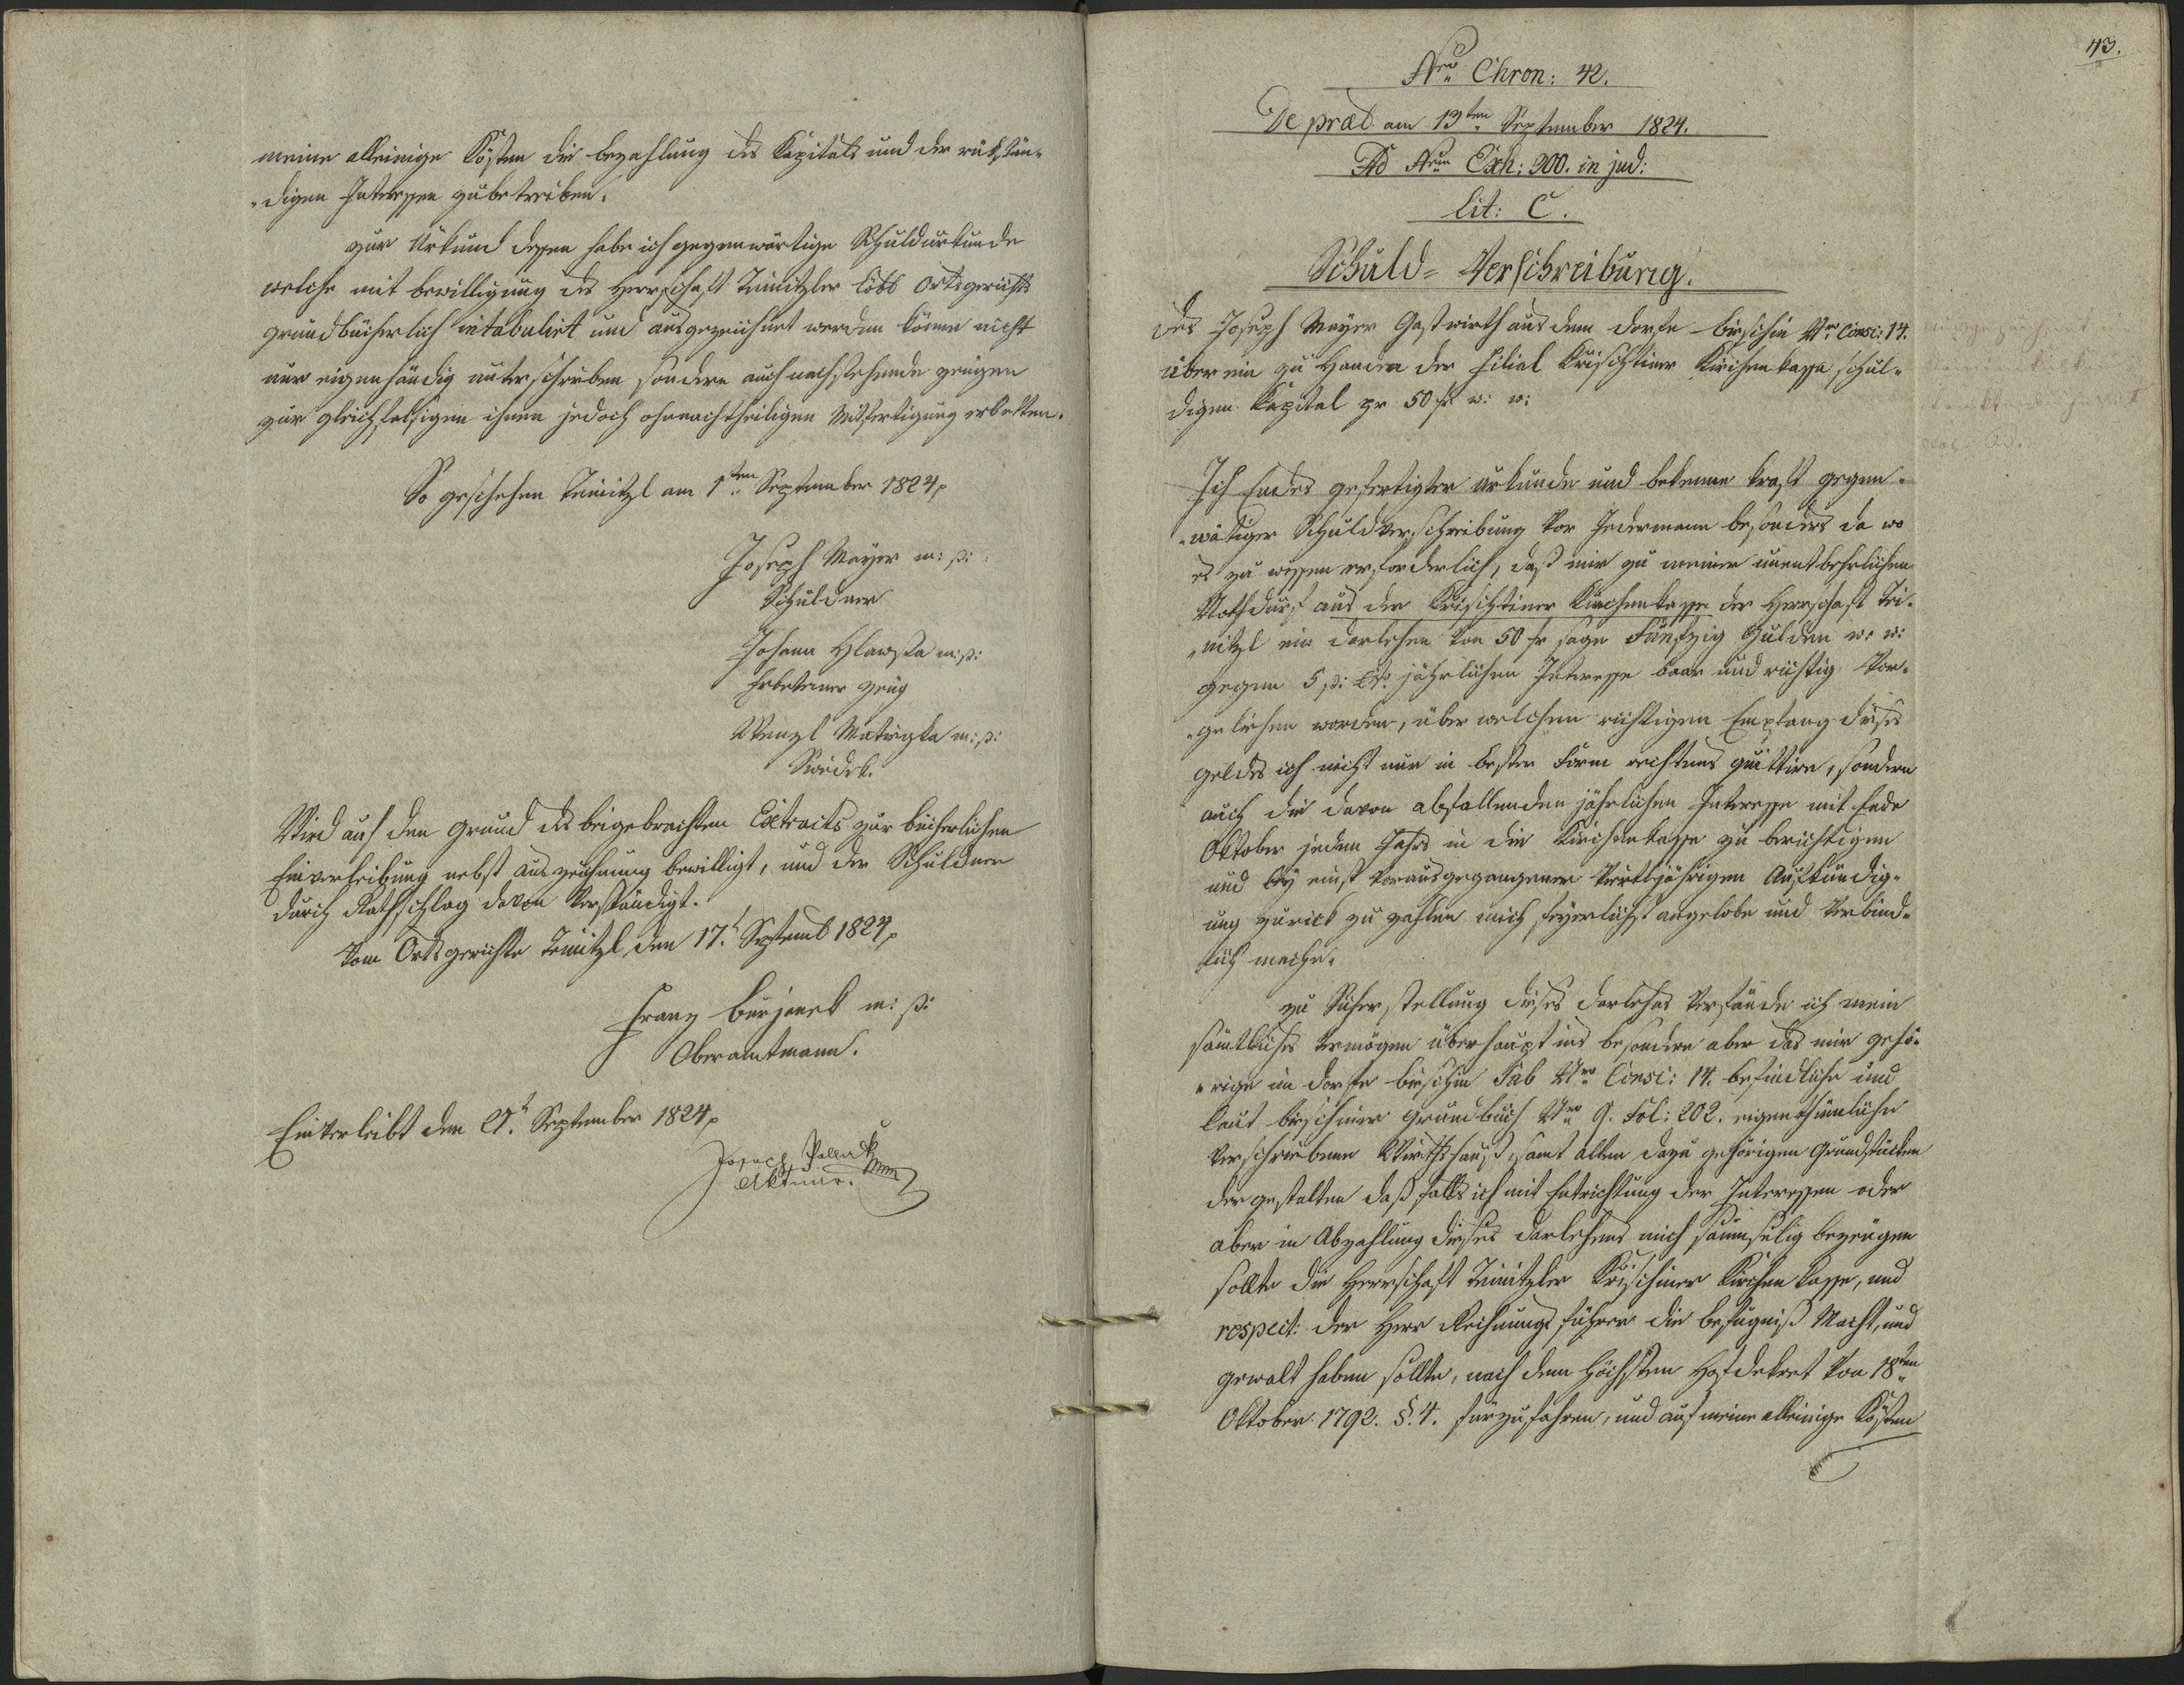 meine alleinige Kösten die bezahlung des Kapitals und der rükstän„
„digen Interessen zu betreiben.
zur Urkund dessen habe ich gegenwärtige Schuldurkunde
welche mit bewilligung des Herrschaft Teinitzler löbl Ortsgerichts
grundbücherlich intabulirt und ausgezeichnet werden könne nicht
nur eigenhändig unterschrieben sondern auch nachstehende zeugen
zur gleichfalsigen ihnen jedoch ohnnachtheiligen Mitfertigung erbetten.
So geschehen Teinitzl am 1ten September 1824
Joseph Mayer m: p:
Schuldner
Johann Hlawsa m: p:
Erbetener zeug
Wenzl m: p:
Swědek.
Wird auf den Grund des beigebrachten Extracts zur bücherlichen
Einverleibung nebst auszeichnung bewilligt, und der Schuldner
durch Rathschlag davon verständigt.
Vom Ortsgerichte Teinitzl den 17t Septemb 1824
Franz Burjanek m: p:
Oberamtmann.
Einverleibt den 21t September 1824
Joseph Pollack
Aktuar.
43.
Nro Chron: 42.
De præs am 13ten September 1824.
Ad Nrum Exh: 900. in jud:
lit: C.
Schuld= Verschreibung.
des Joseph Mayer Gastwirth aus dem dorfe birschin Nro Consc: 14.
über ein zu Handen der Filial Krischtiner Kirchenkassa schul„
digen Kapital pr 50 fr w: w:
Ich Endes gefertigter urkunde und bekenne kraft gegen„
„wärtiger Schuldverschreibung vor Jedermann besonders da wo
es zu wissen erforderlich, daß mir zu meiner unentbehrlichen
Nothdurf aus der Krischtiner Kirchenkasse der Herrschaft Tei„
„nitzl ein darlehen von 50 fr sage Fünfzig Gulden w: w:
gegen 5 p: Ct: jährlichen Interesse baar und richtig vor„
„geliehen worden, über welchen richtigen Empfang dieses
geldes ich nicht nur in bester Form rechtens quittire, sondern
auch die davon abfallenden jährlichen Interesse mit Ende
Oktober jeden Jahrs in die Kirchenkasse zu berichtigen
und bey einst vorausgegangener viertljährigen Aufkündig„
ung zurück zu zahlen mich feyerlichst angelobe und verbind„
lich mache.
zu Sicherstellung dieses darlehns verpfände ich mein
sämtliches vermögen überhaupt ins besondere aber das mir gehö„
„rige im dorfe birschin Sub Nro Consc: 14. befindliche und
laut birschiner grundbuch Nro 9. Fol: 202. eigenthümliche
verschriebene Wirthshaus, samt allen dazu gehörigen Grundstücken
der gestalten daß falls ich mit Entrichtung der Interessen oder
aber in Abzahlung dieses darlehens mich saumselig bezeugen
sollte die Herrschaft Teinitzler Krischiner Kirchen kasse, und
respect: der Herr Rechnungsführer die befugniß Macht, und
gewalt haben sollte, nach dem höchsten Hofdekret von 18ten
Oktober 1792. §. 4. fürzufahren, und auf meine alleinige Kösten